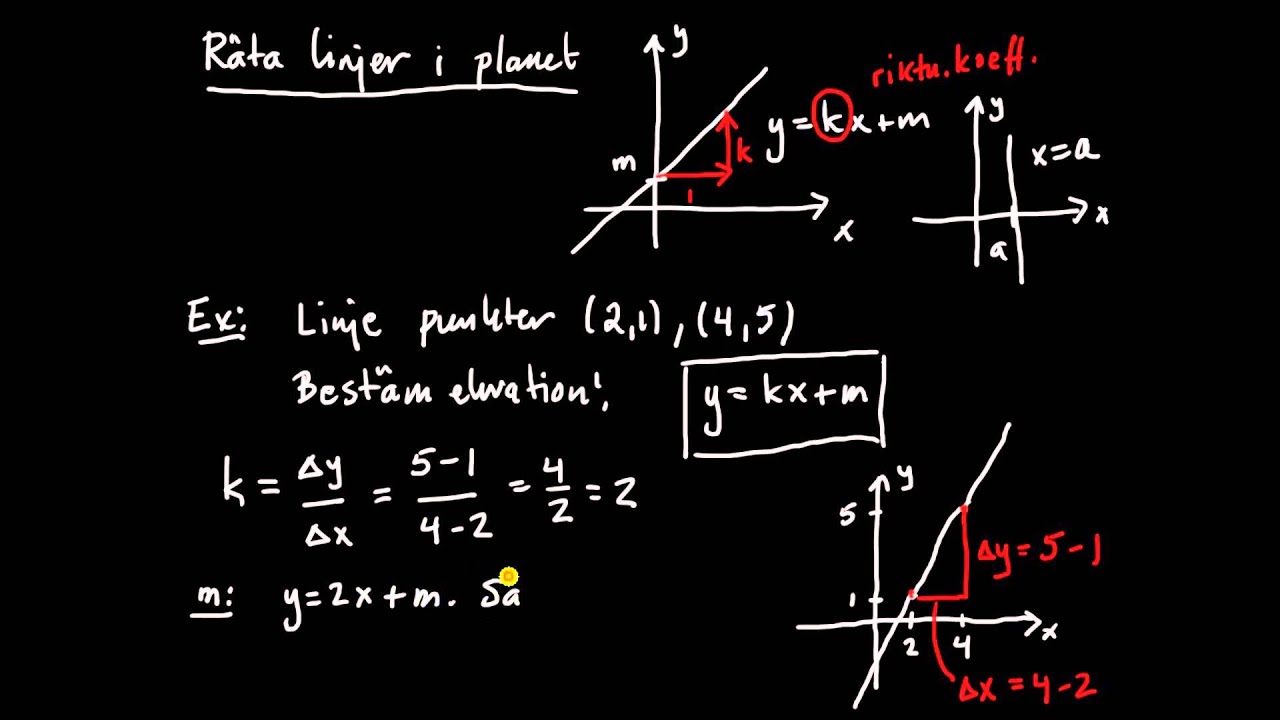 Räta linjer i planet
y
m
k
1
x
y = kx + m
riktn.koeff.
y
x = a
x
a
Ex: Linje punkter (2,1), (4,5)
Bestäm ekvation!
y = kx + m
k = Δy/Δx = 5-1/4-2 = 4/2 = 2
m: y = 2x + m. Så
y
5
1
2
4
x
Δy = 5-1
Δx = 4-2